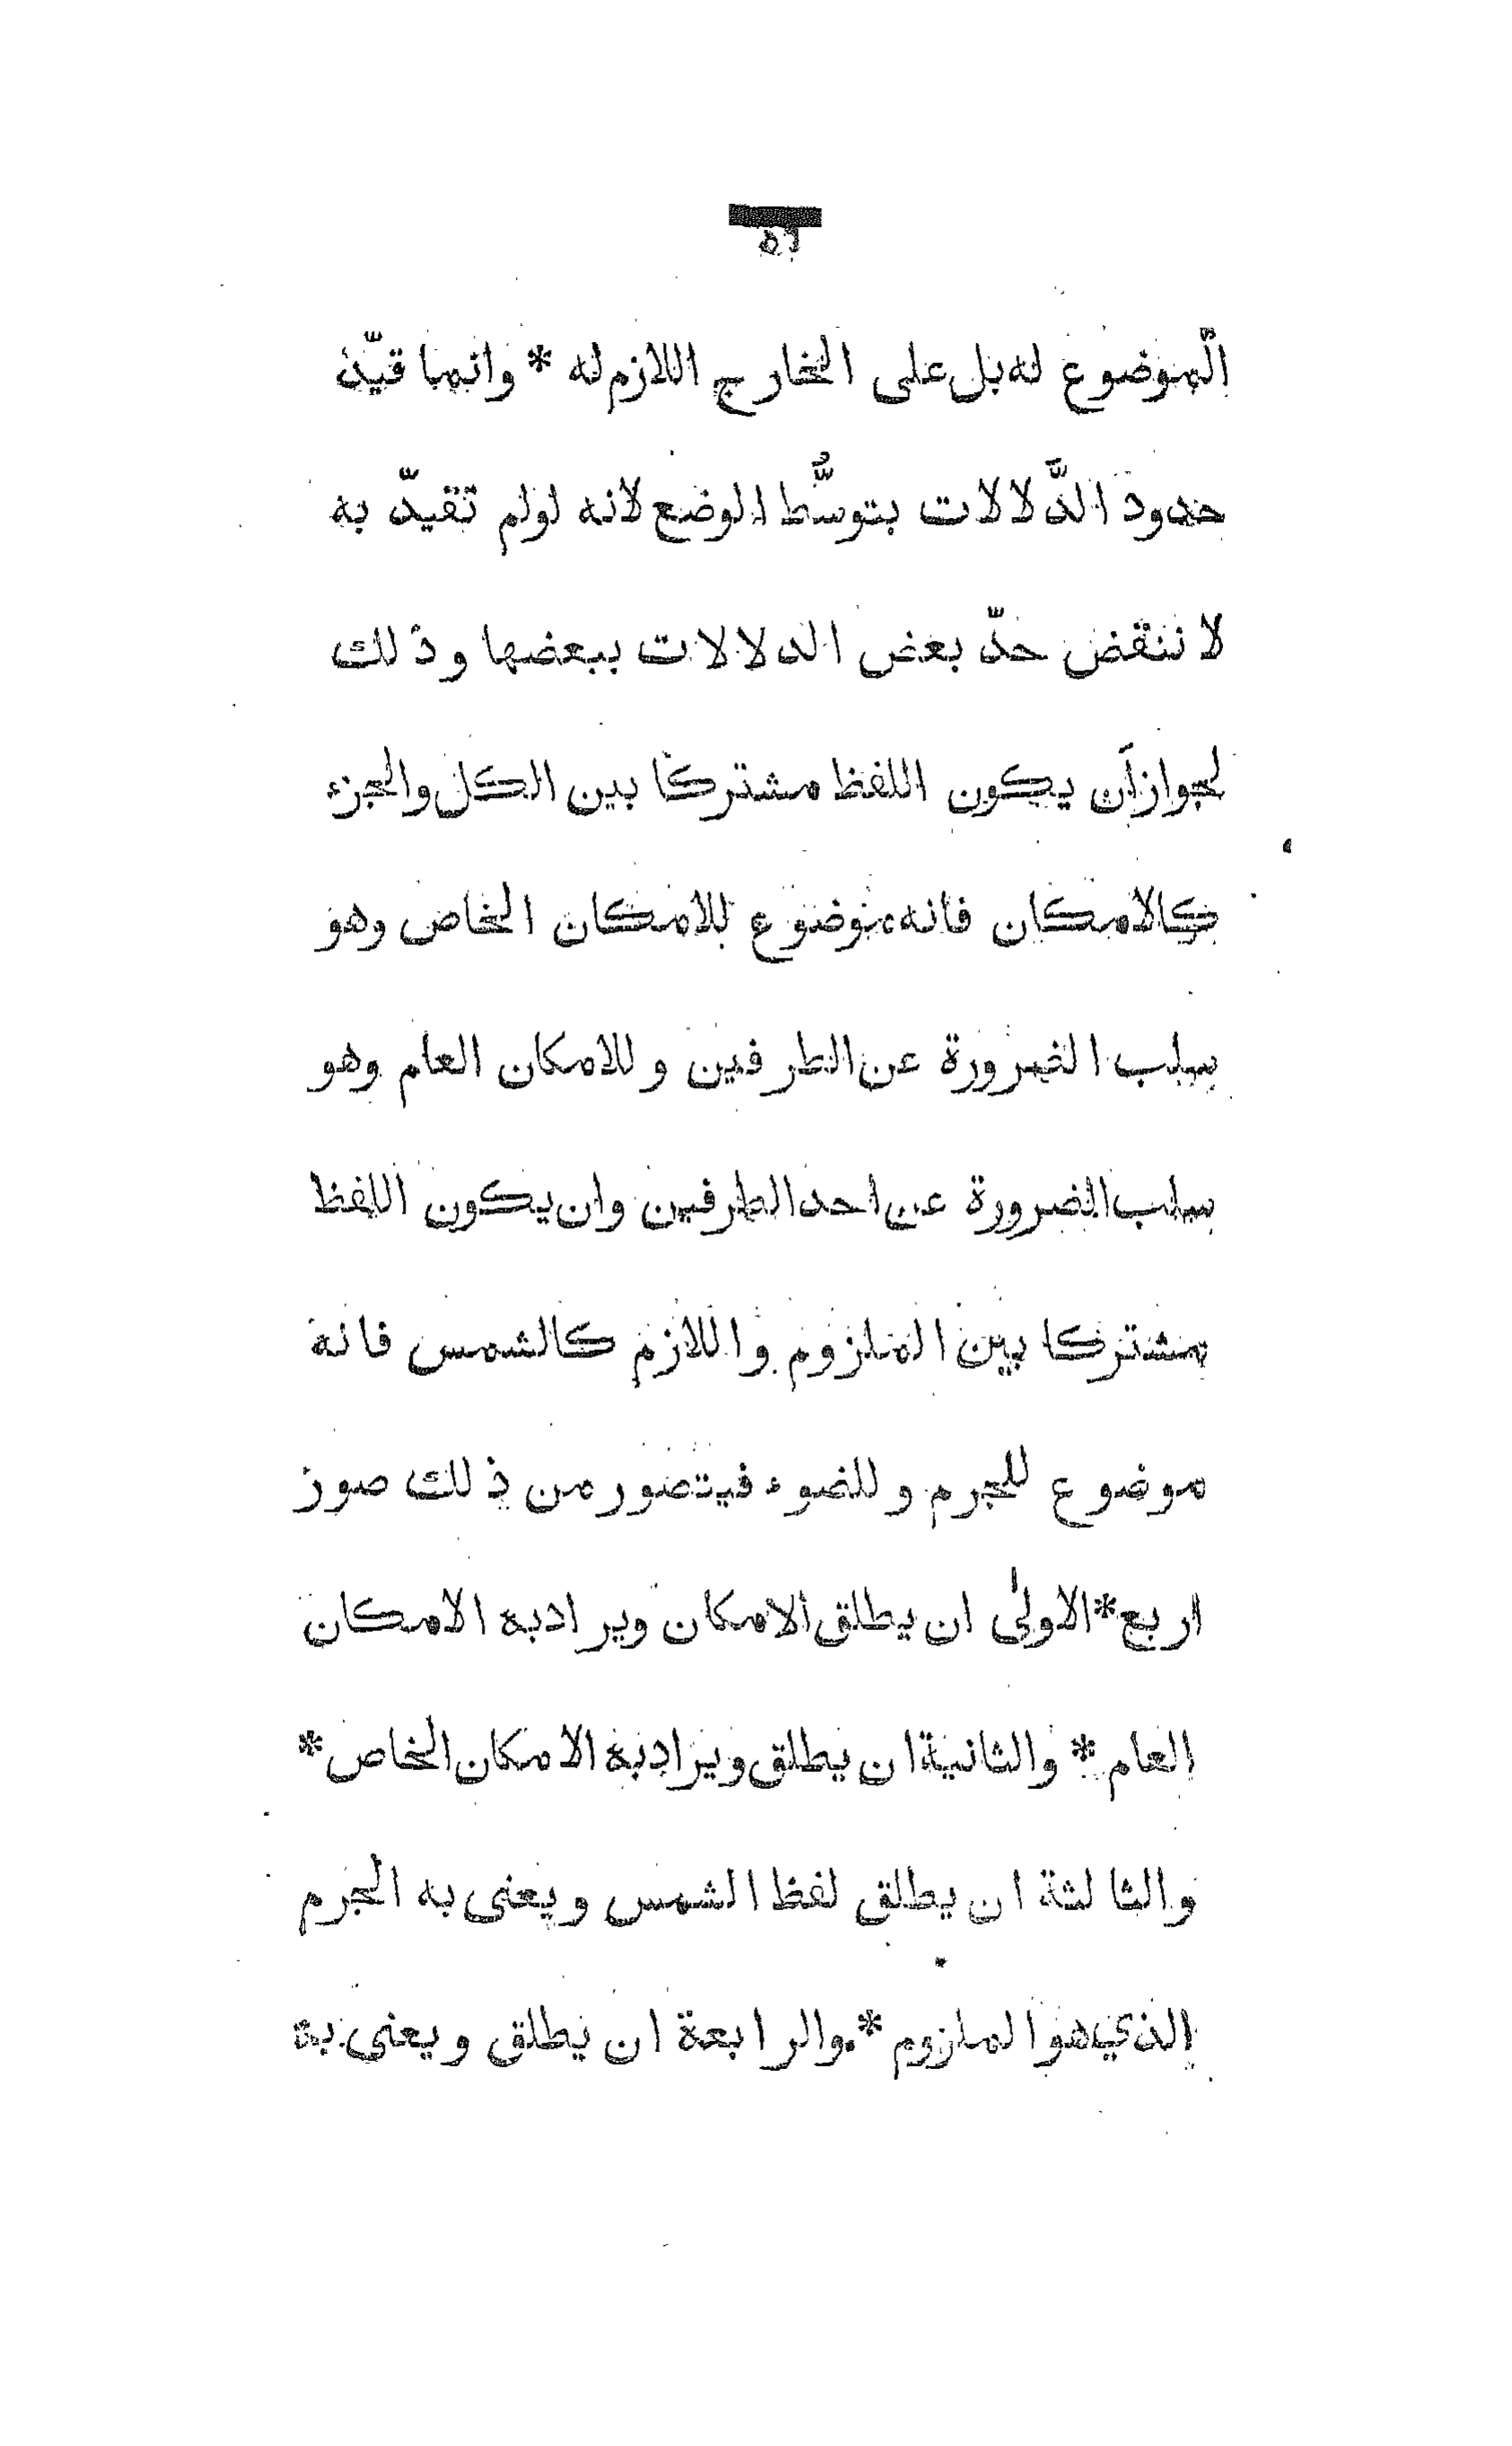 الموضوع له بل على الخارج اللازم له * وانما قيّد
حدود الدَّلالات بتوسُّط الوضع لانه لولم تقيدّ به
لا نتقض حدّ بعض الدلالات ببعضها وذلك
لجوازأن يكون اللفظ مشتركا بين الكل والجزء
كالامكان فانه موضوع للامكان الخاص وهو
سلب الضرورة عن الطرفين وللامكان العام وهو
سلب الضرورة عن احد الطرفين وان يكون اللفظ
مشتركا بين الملزوم واللازم كالشمس فانه
موضوع للجرم وللضوء فيتصور من ذلك صور
اربع * الاولىٰ ان يطلق الامكان ويراد به الامكان
العام * والثانية ان يطلق ويراد به الامكان الخاص *
والثالثة ان يطلق لفظ الشمس ويعنى به الجرم
الذي هو الملزوم * والرابعة ان يطلق ويعنى به